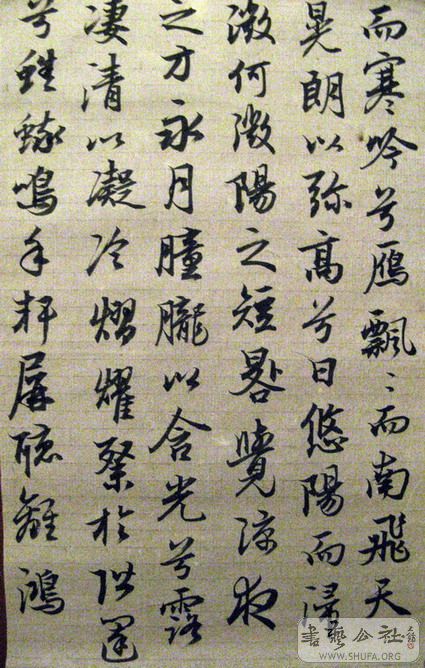 而寒吟兮鴈飄〻而南飛天
晃朗以弥高兮日悠陽而浸
微何微陽之短晷覺涼夜
之方永月朣朧以含光兮露
凄清以凝冷熠燿粲於階闥
兮蟋蟀鳴乎軒屏聽離鴻
書藝公社
WWW.SHUFA.ORG